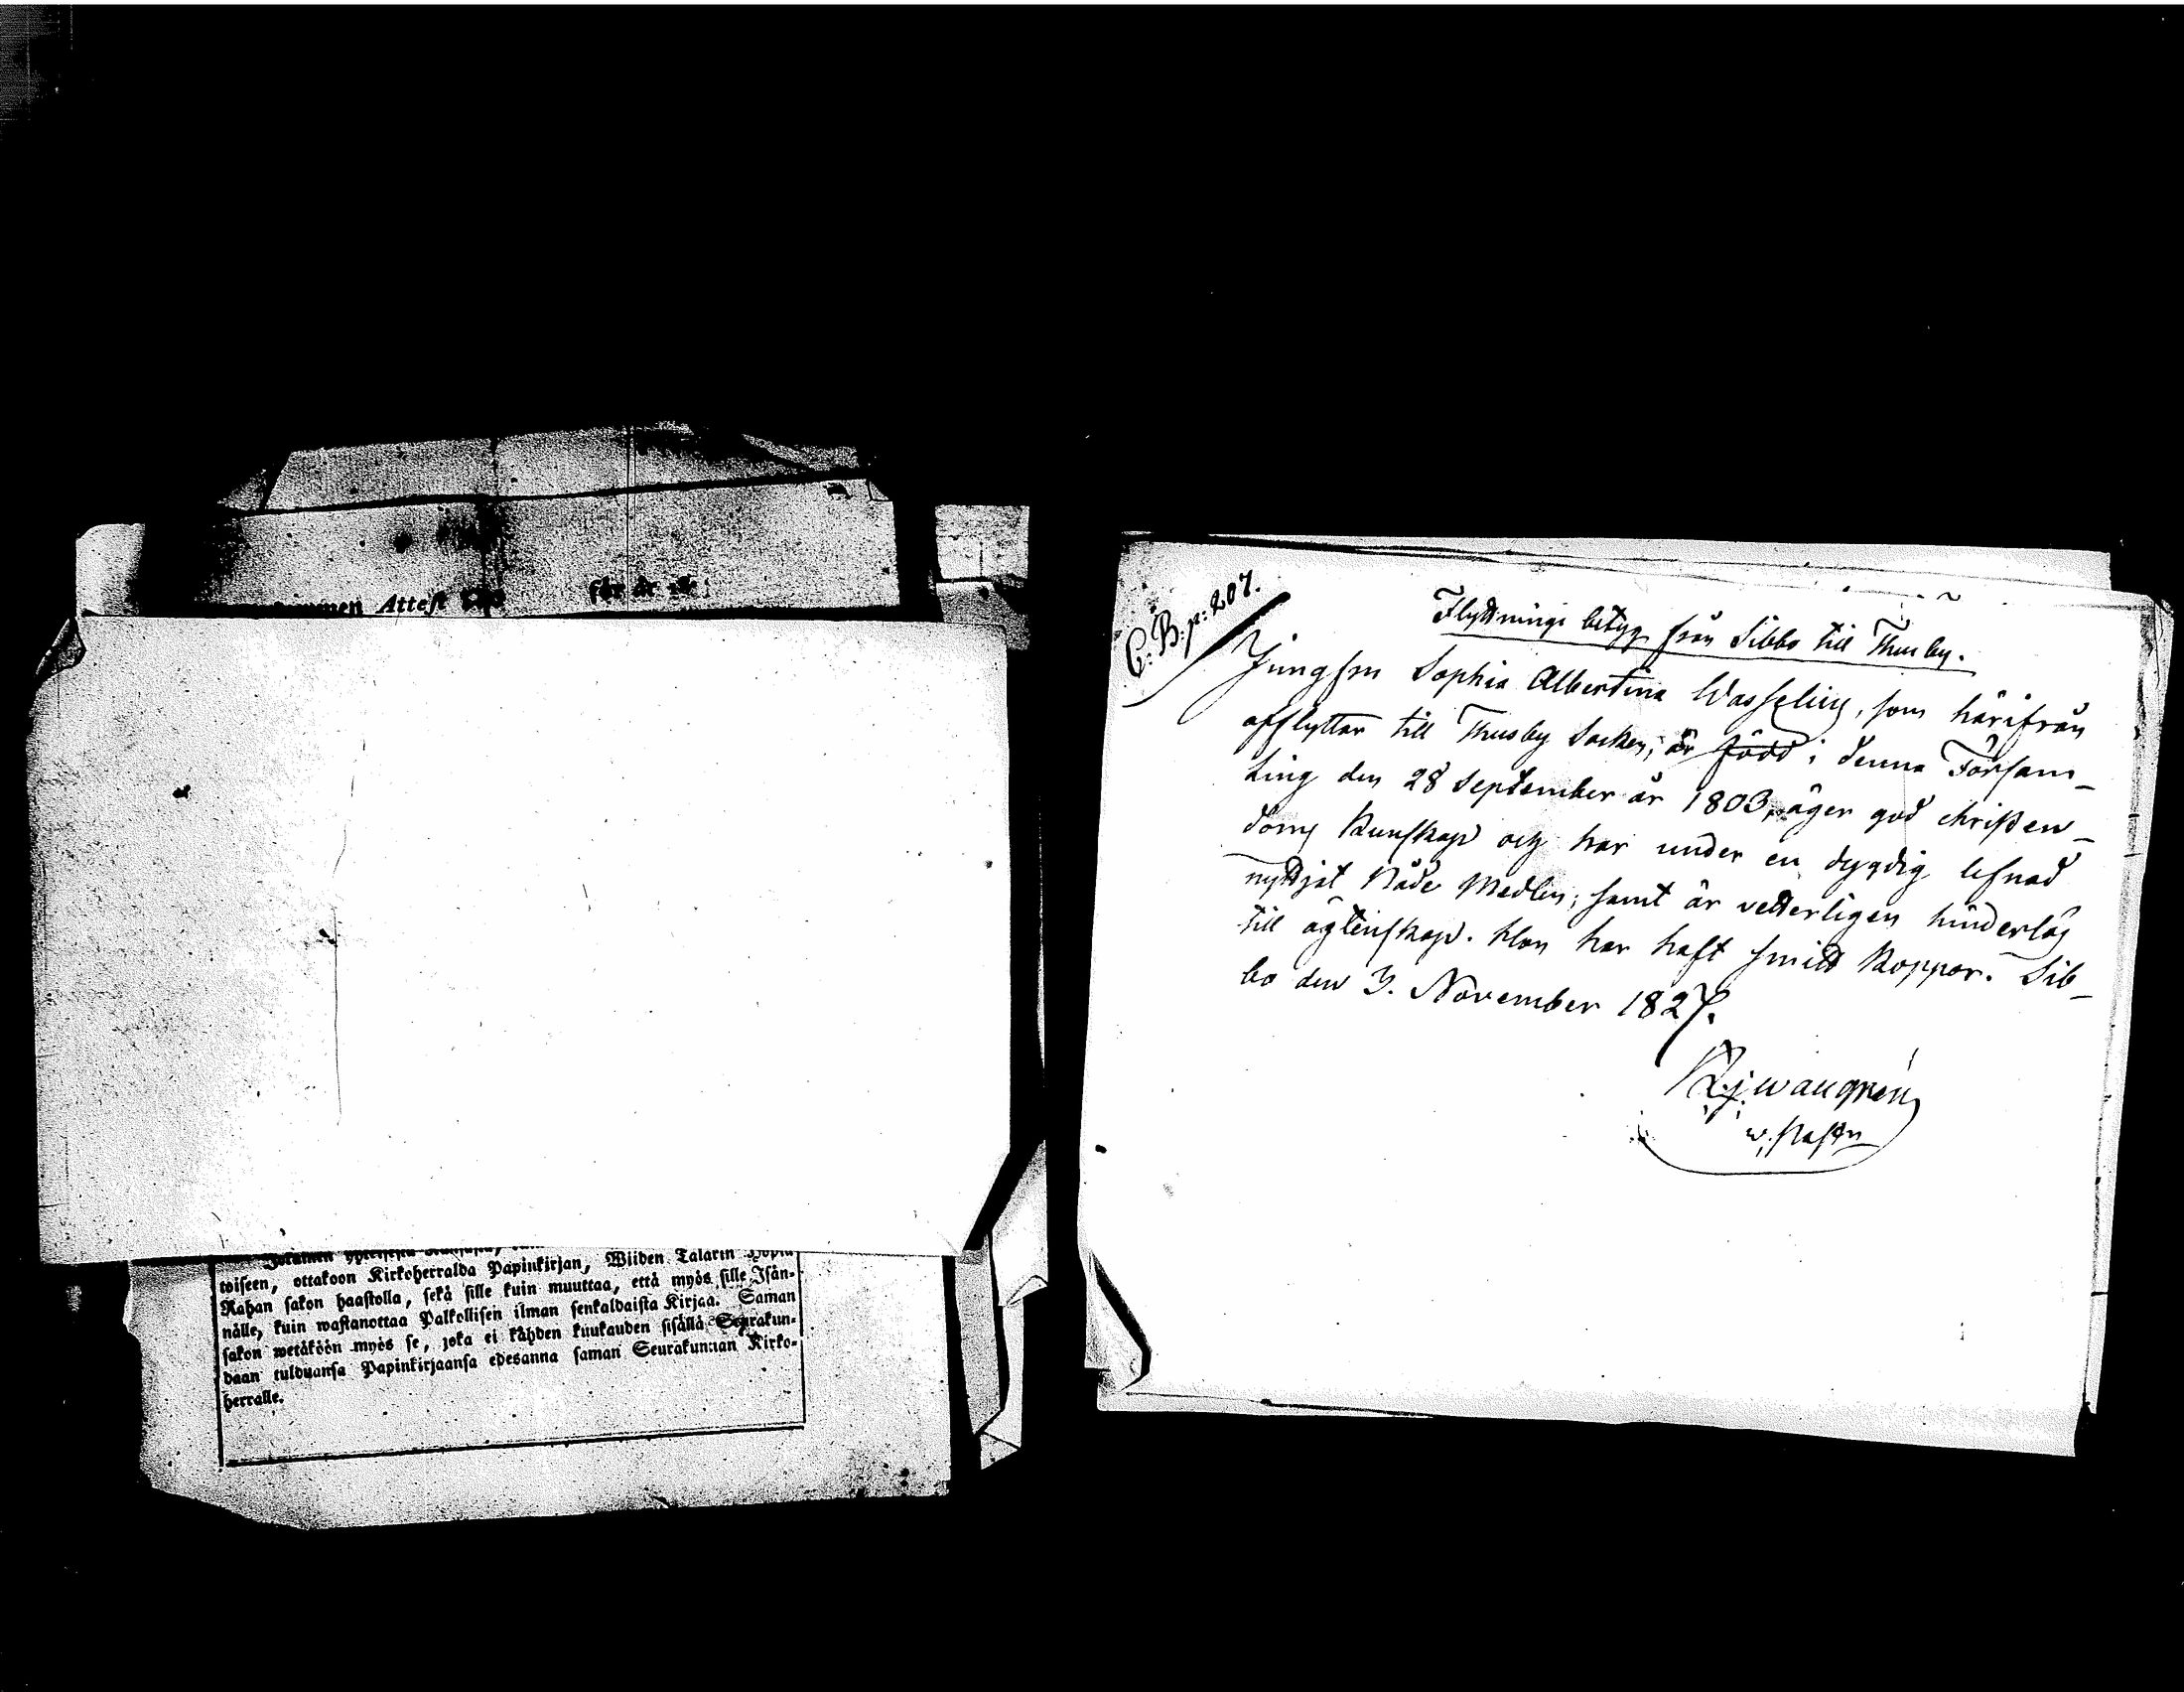 Attest för år 18
toiseen, ottakoon Kirkoherralda Papinkirjan, Wiiden Talarin
Rahan sakon haastolla, sekä sille kuin muuttaa, että myös sille Isän-
nälle, kuin wastanottaa Palkollisen ilman senkaldaista Kirjaa. Saman
sakon wetäköön myös se, joka ei kahden kuukauden sisällä Seurakun-
daan tulduansa Papinkirjaansa edesanna saman Seurakunnan Kirko-
herralle.
C. B. p: 207.
Flyttnings betyg från Sibbo till Thusby.
Jungfru Sophia Albertina Wasselius, som härifrån
afflyttar till Thusby Socken, är född i denna Församl-
ling den 28 September år 1803, äger god christen-
doms kunskap och har under en dygdig lefnad
nyttjat Nåde Medlen; samt är vetterligen hinderlös
till ägtenskap. Hon har haft smitt koppor. Sib-
bo den 3. November 1827.